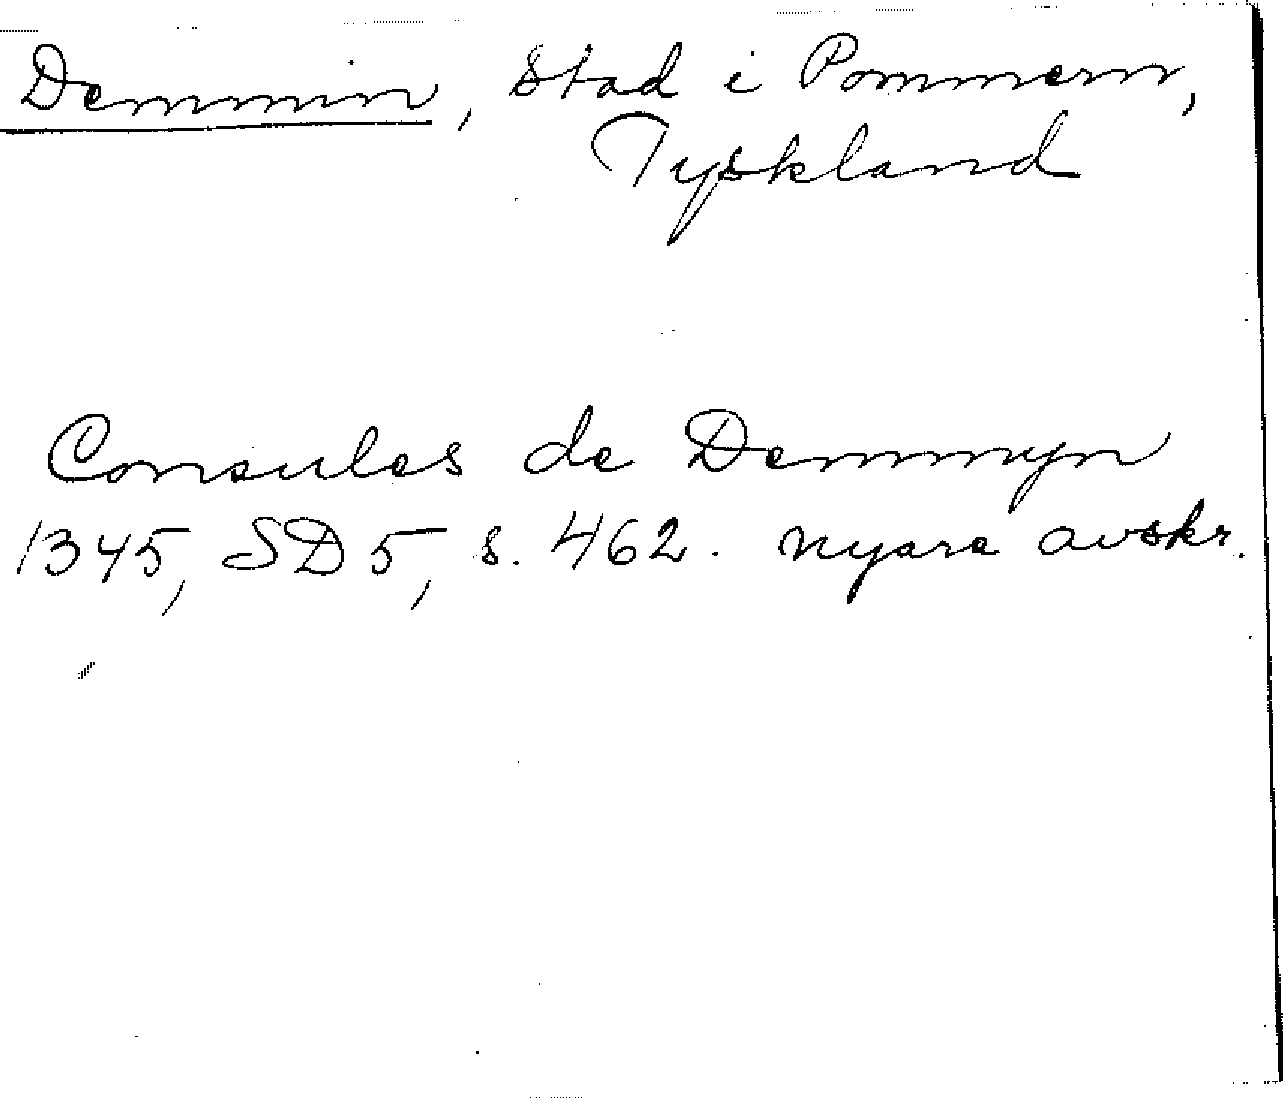 Demmin, stad i Pommern,
Tyskland
Consules de Demmyn
1345, SD 5, s. 462. nyare avskr.